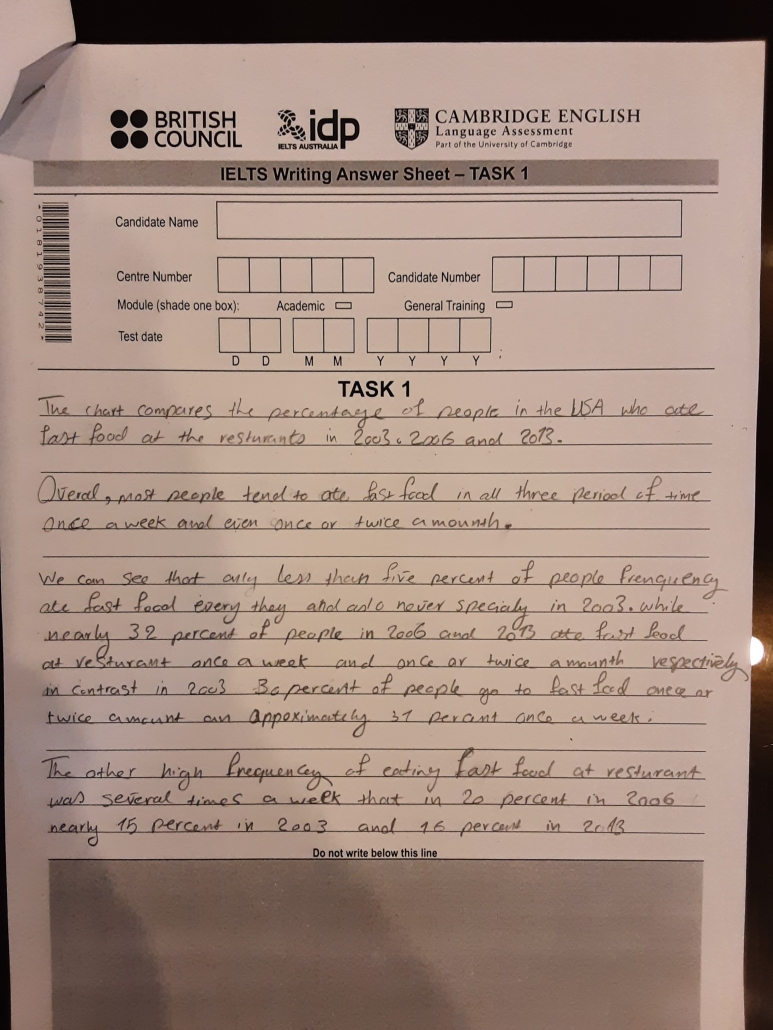 BRITISH
COUNCIL
idp
IELTS AUSTRALIA
CAMBRIDGE ENGLISH
Language Assessment
Part of the University of Cambridge
IELTS Writing Answer Sheet – TASK 1
Candidate Name
Centre Number
Candidate Number
Module (shade one box):
Academic
General Training
Test date
D D M M Y Y Y Y
TASK 1
The chart compares the percentage of people in the USA who ate
fast food at the resturants in 2003. 2006 and 2013.
Overal, most people tend to ate fast food in all three period of time
once a week and even once or twice a mounth.
We can see that only less than five percent of people frenquency
ate fast food every they and also never specialy in 2003. while
nearly 32 percent of people in 2006 and 2013 ate fast food
at resturant once a week and once or twice a mounth respectively
in contrast in 2003 30 percent of people go to fast food once or
twice a mount an appoximately 31 percent once a week.
The other high frequency of eating fast food at resturant
was several times a week that in 20 percent in 2006
nearly 15 percent in 2003 and 16 percent in 2013
Do not write below this line